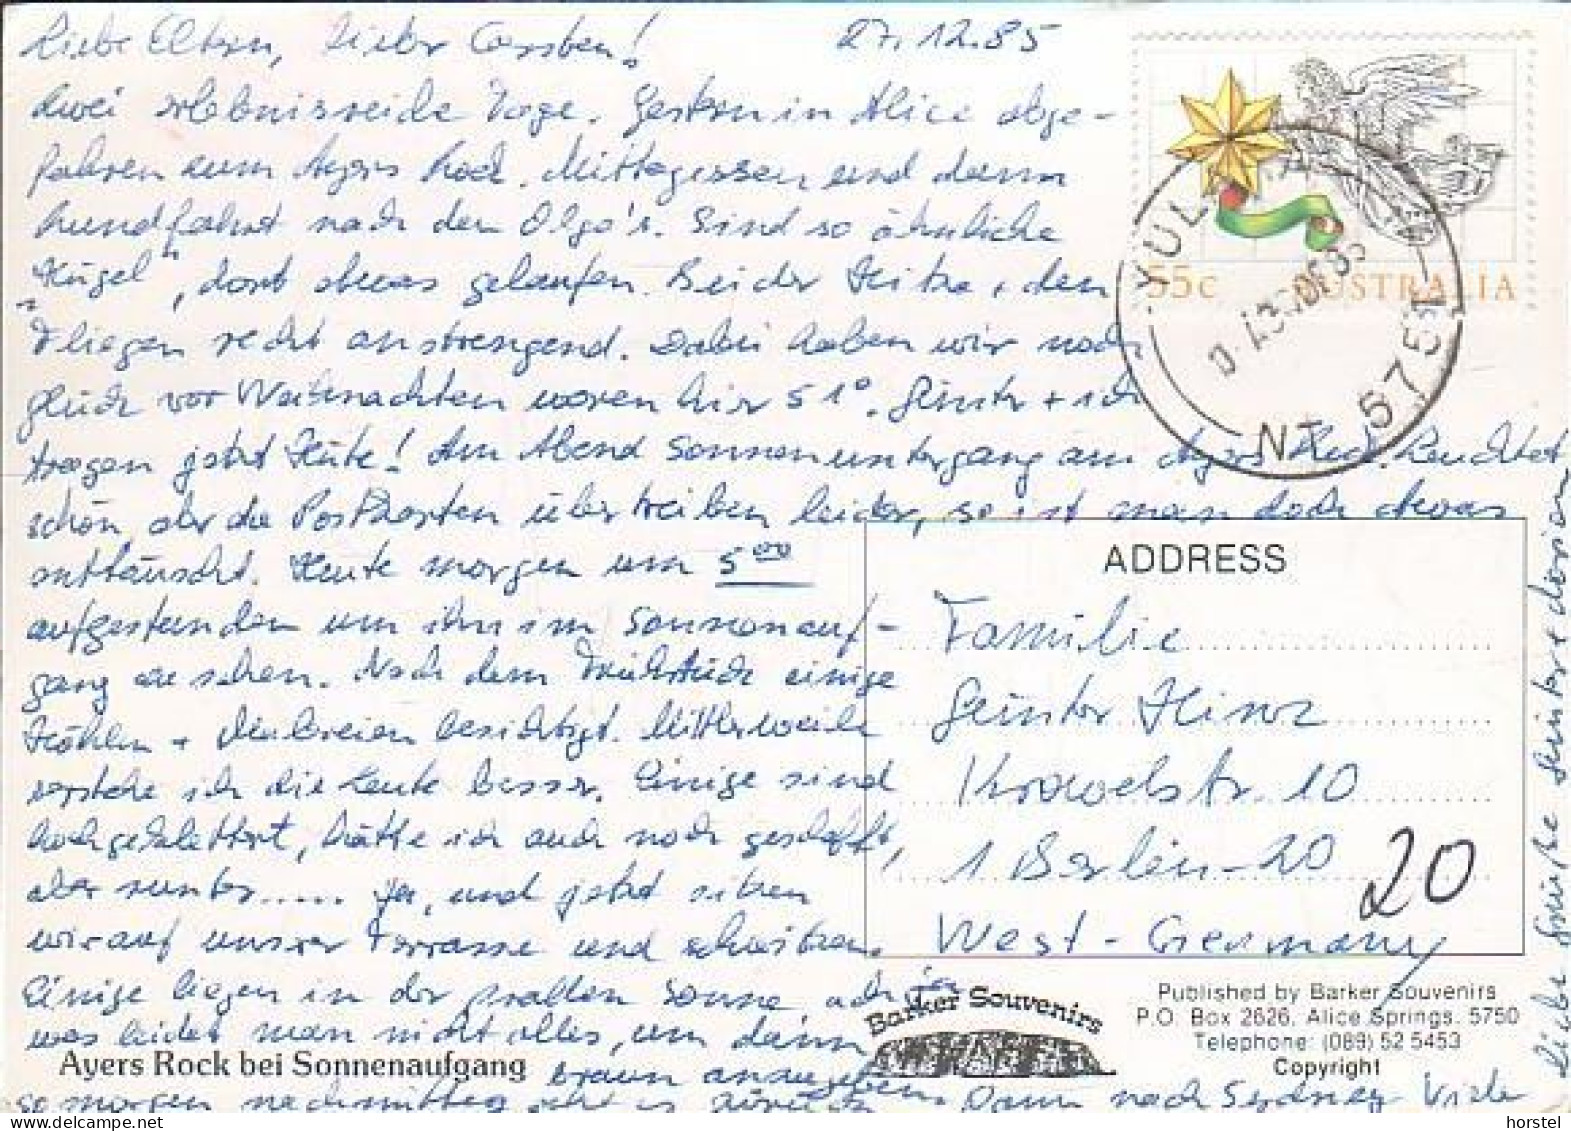 Liebe Eltern, lieber Carsten! 27.12.85
zwei erlebnisreiche Tage. Gestern in Alice abge-
fahren zum Ayers Rock. Mittagessen und dann
Rundfahrt nach den Olga's. Sind so ähnliche
"Hügel", dort etwas gelaufen. Bei der Hitze + den
Fliegen recht anstrengend. Dabei haben wir noch
Glück vor Weihnachten waren hier 51°. Günter + ich
tragen jetzt Hüte! Am Abend Sonnenuntergang am Ayers Rock. Leuchtet
schön, aber die Postkarten übertreiben leider, so ist man doch etwas
enttäuscht. Heute morgen um 5⁰⁰
aufgestanden um ihn im Sonnenauf-
gang zu sehen. Nach dem Frühstück einige
Höhlen + Malereien besichtigt. Mittlerweile
verstehe ich die Leute besser. Einige sind
hochgeklettert, hätte ich auch noch geschafft,
aber runter..... Ja, und jetzt sitzen
wir auf unserer Terrasse und schwitzen.
Einige liegen in der prallen Sonne ach ja
was leidet man nicht alles, um dann
braun anzugeben.
so morgen nachmittag geht es zurück Dann nach Sydney Viele
liebe Grüße Günter + Marion
55c AUSTRALIA
YULARA
NT 5751
ADDRESS
Familie
Günter Hinz
1 Berlin-20
20
West-Germany
Barker Souvenirs
Published by Barker Souvenirs
P.O. Box 2626, Alice Springs, 5750
Telephone: (089) 52 5453
Copyright
Ayers Rock bei Sonnenaufgang
horstel